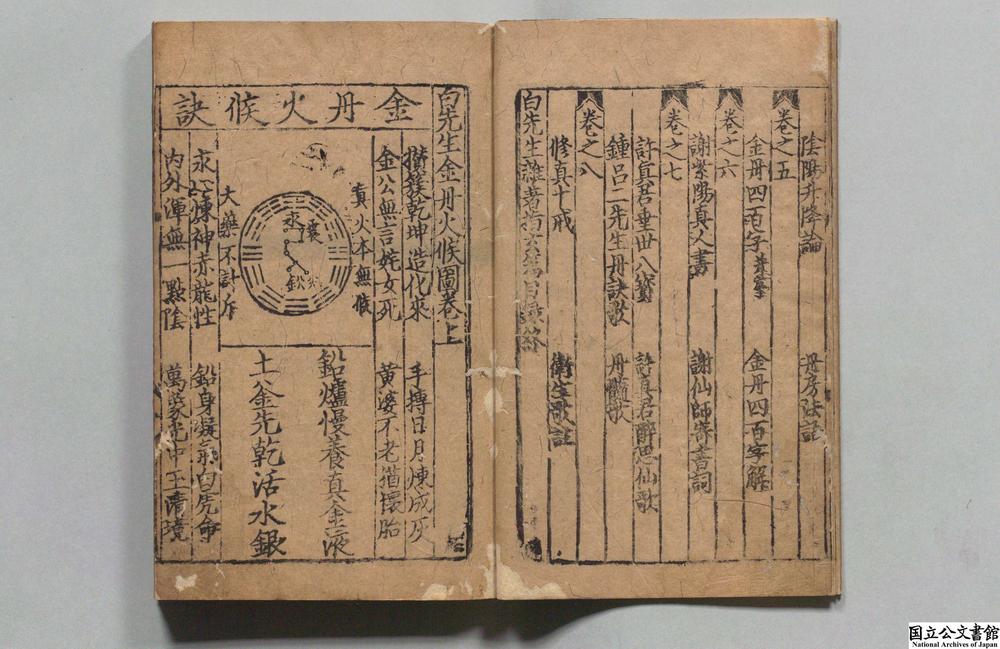 陰陽升降論　丹房法語
卷之五
金丹四百字　金丹四百字解
卷之六
謝紫陽真人書　謝仙師寄書詞
卷之七
許真君垂世八寶　許真君醉思仙歌
鍾呂二先生丹訣歌　丹髓歌
卷之八
修真十戒　衛生歌註
白先生雜著指玄篇目錄
金丹火候訣
白先生金丹火候圖卷上
攅簇乾坤造化來　手摶日月煉成灰
金公無言姹女死　黃婆不老猶懷胎
真火本無候
汞
鈆
大藥不計斤
鉛爐慢養真金液
土釜先乾活水銀
汞心煉神赤龍性　鉛身凝氣白虎命
內外渾無一點陰　萬象光中玉清境
国立公文書館
National Archives of Japan